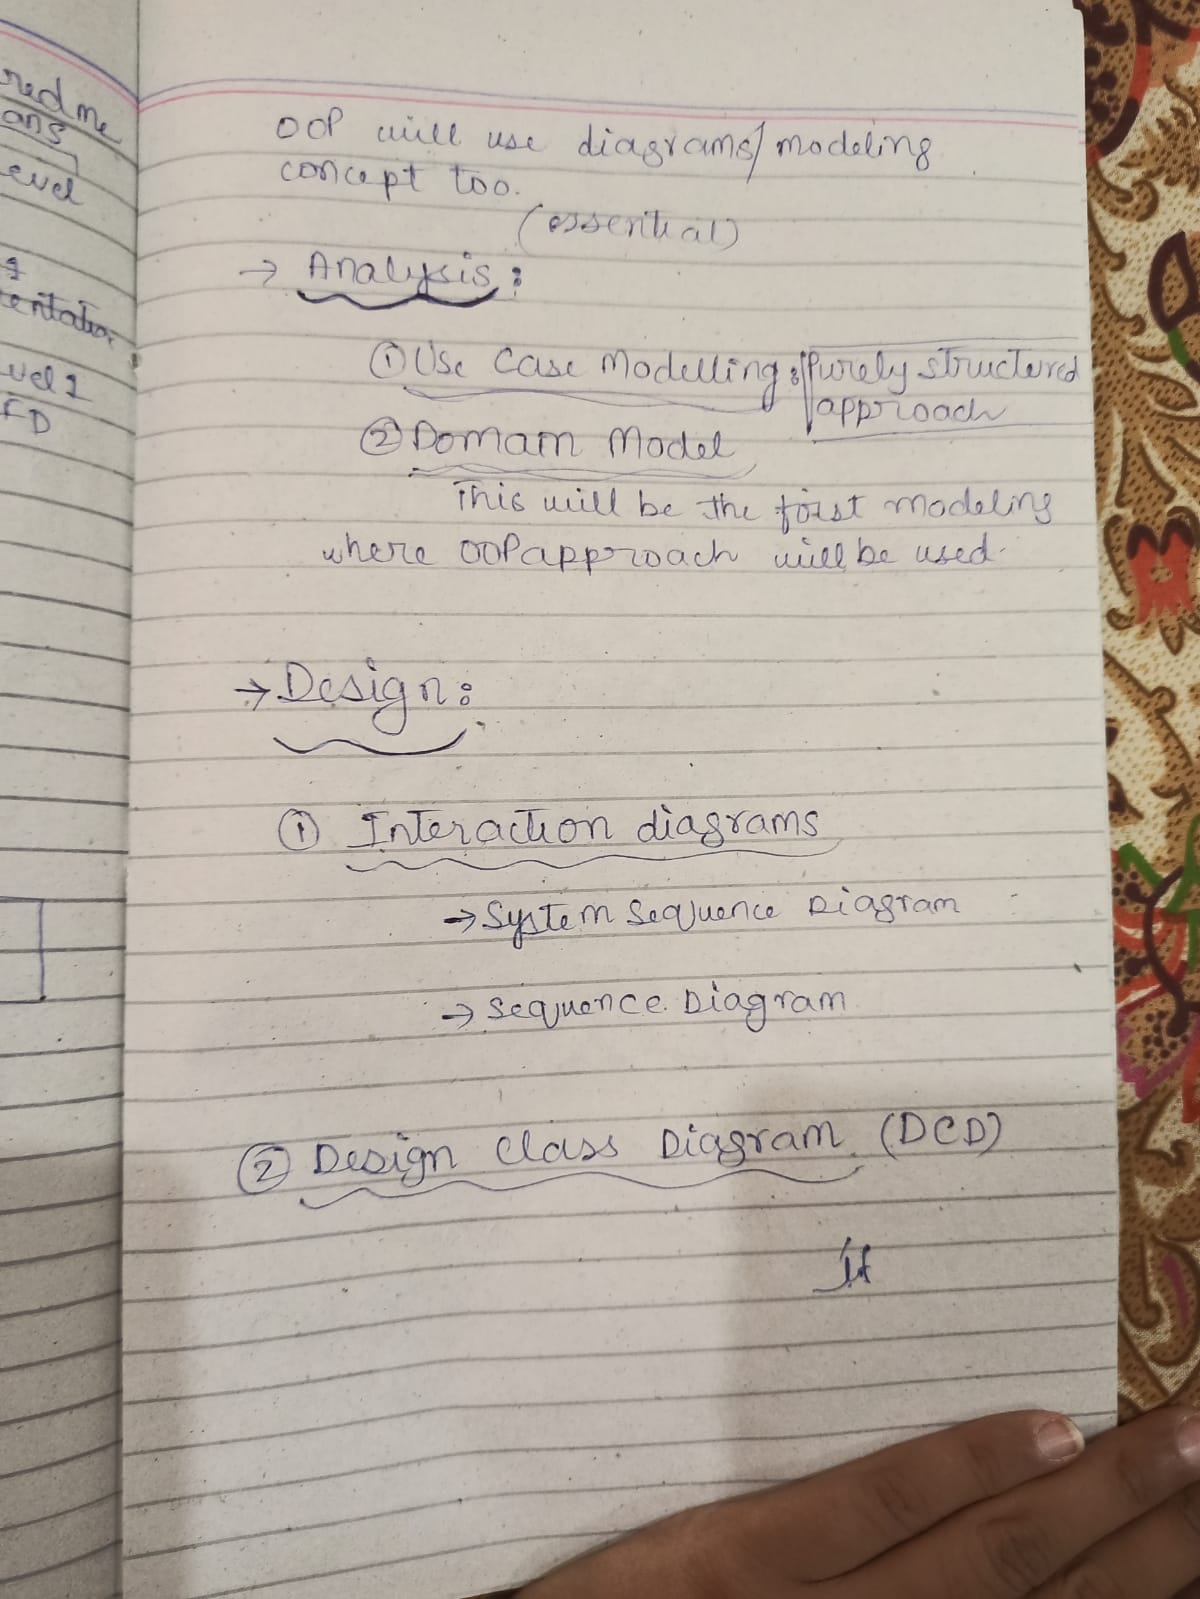 red me
ans
evel
tentation
vel 1
FD
OOP will use diagrams/modeling
concept too.
(essential)
→ Analysis:
① Use Case Modelling: Purely structured
approach
② Domain Model
This will be the first modeling
where OOP approach will be used.
→ Design:
① Interaction diagrams
→ System Sequence Diagram
→ Sequence Diagram
② Design Class Diagram (DCD)